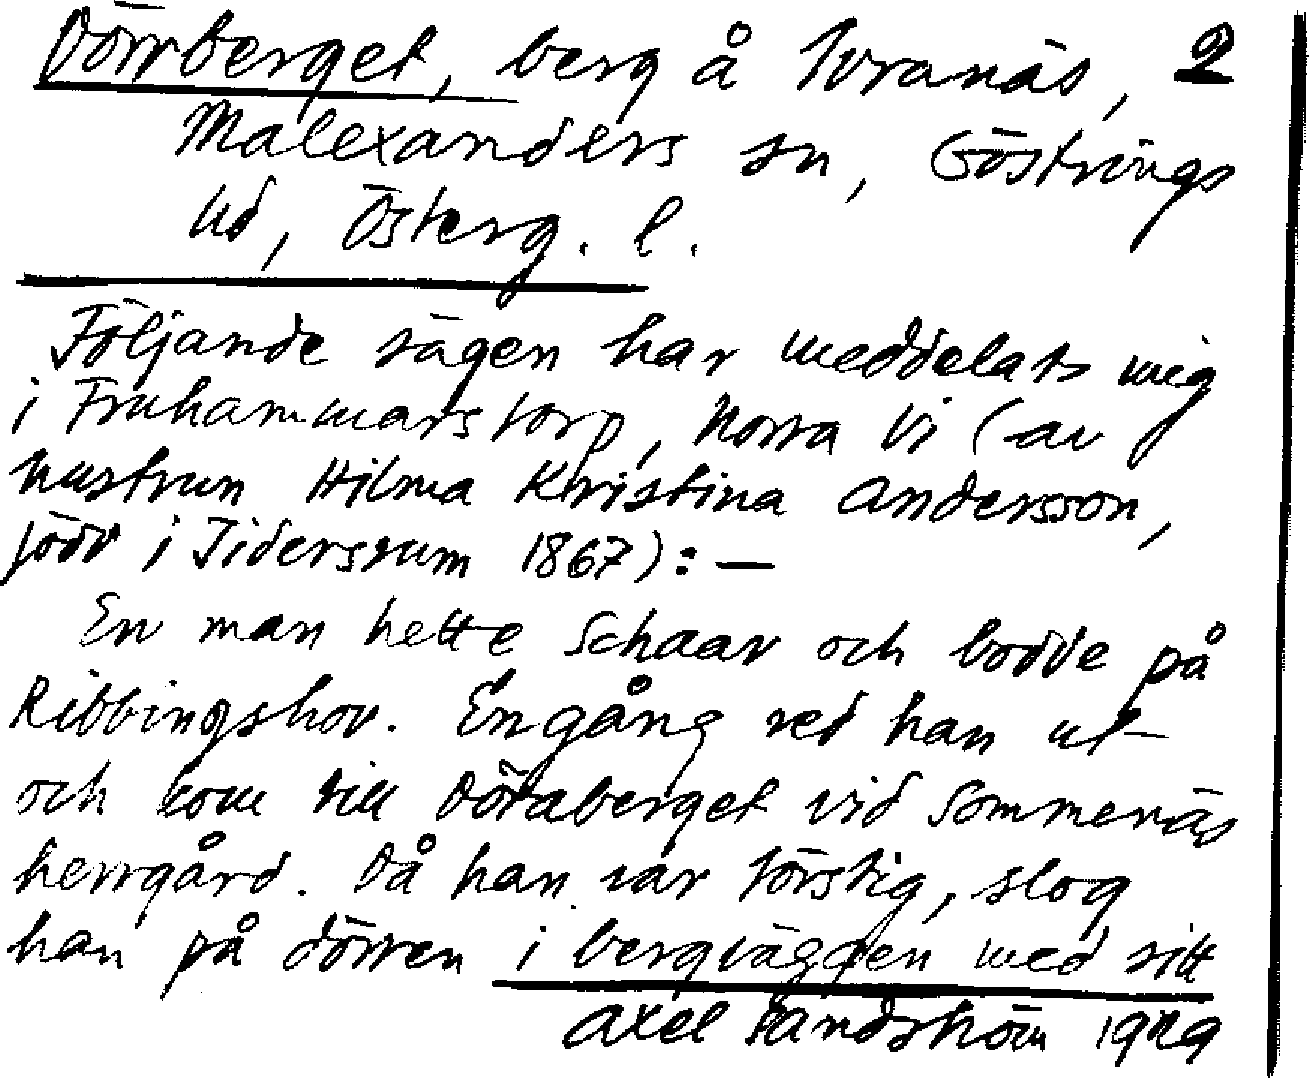 Dörrberget, berg å Tvranäs, 2
Malexanders sn, Göstrings
hd, Österg. l.
Följande sägen har meddelats mig
i Fruhammarstorp, Norra Vi (av
hustrun Hilma Kristina Andersson,
född i Tidersrum 1867): —
En man hette Schaar och bodde på
Ribbingshov. Engång red han ut
och kom till Dörraberget vid Sommenäs
herrgård. Då han var törstig, slog
han på dörren i bergväggen med sitt
Axel Sandström 1929